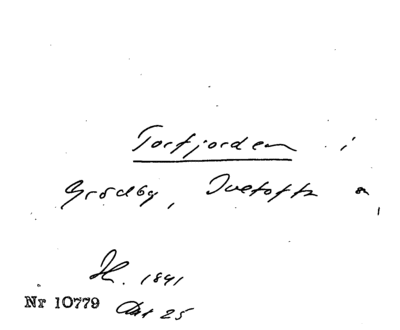 Torfjorden i
Grödby, Ivetofta
H. 1841
Nr 10779 Akt 25